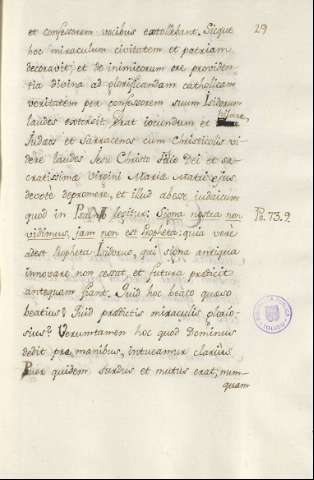 29
et confessorem vocibus extollebant. Sicque
hoc miraculum civitatem et patriam
decoravit, et de inimicorum ore providen-
tia divina ad glorificandam catholicam
veritatem per confessorem suum Isidorum
laudes extorsit. Erat iocundum et
Judaeos et Sarracenos cum Christicolis vi-
dere laudes Jesu Christo filio Dei et sa-
cratissimae Virgini Mariae Matri ejus
devotè depromere, et illud abesse judaicum
quod in legitur: Signa nostra non Ps. 73. 9.
vidimus, jam non est Propheta: quia verè
adest Propheta Isidorus, qui signa antiqua
innovare non cessat, et futura praedicit
antequam fiant. Quid hoc beato quaeso
beatius? Quid praedictis miraculis gloriо-
sius? Verumtamen hoc quod Dominus
dedit prae manibus, intueamur clariùs.
Puer quidem surdus et mutus erat; num-
quam